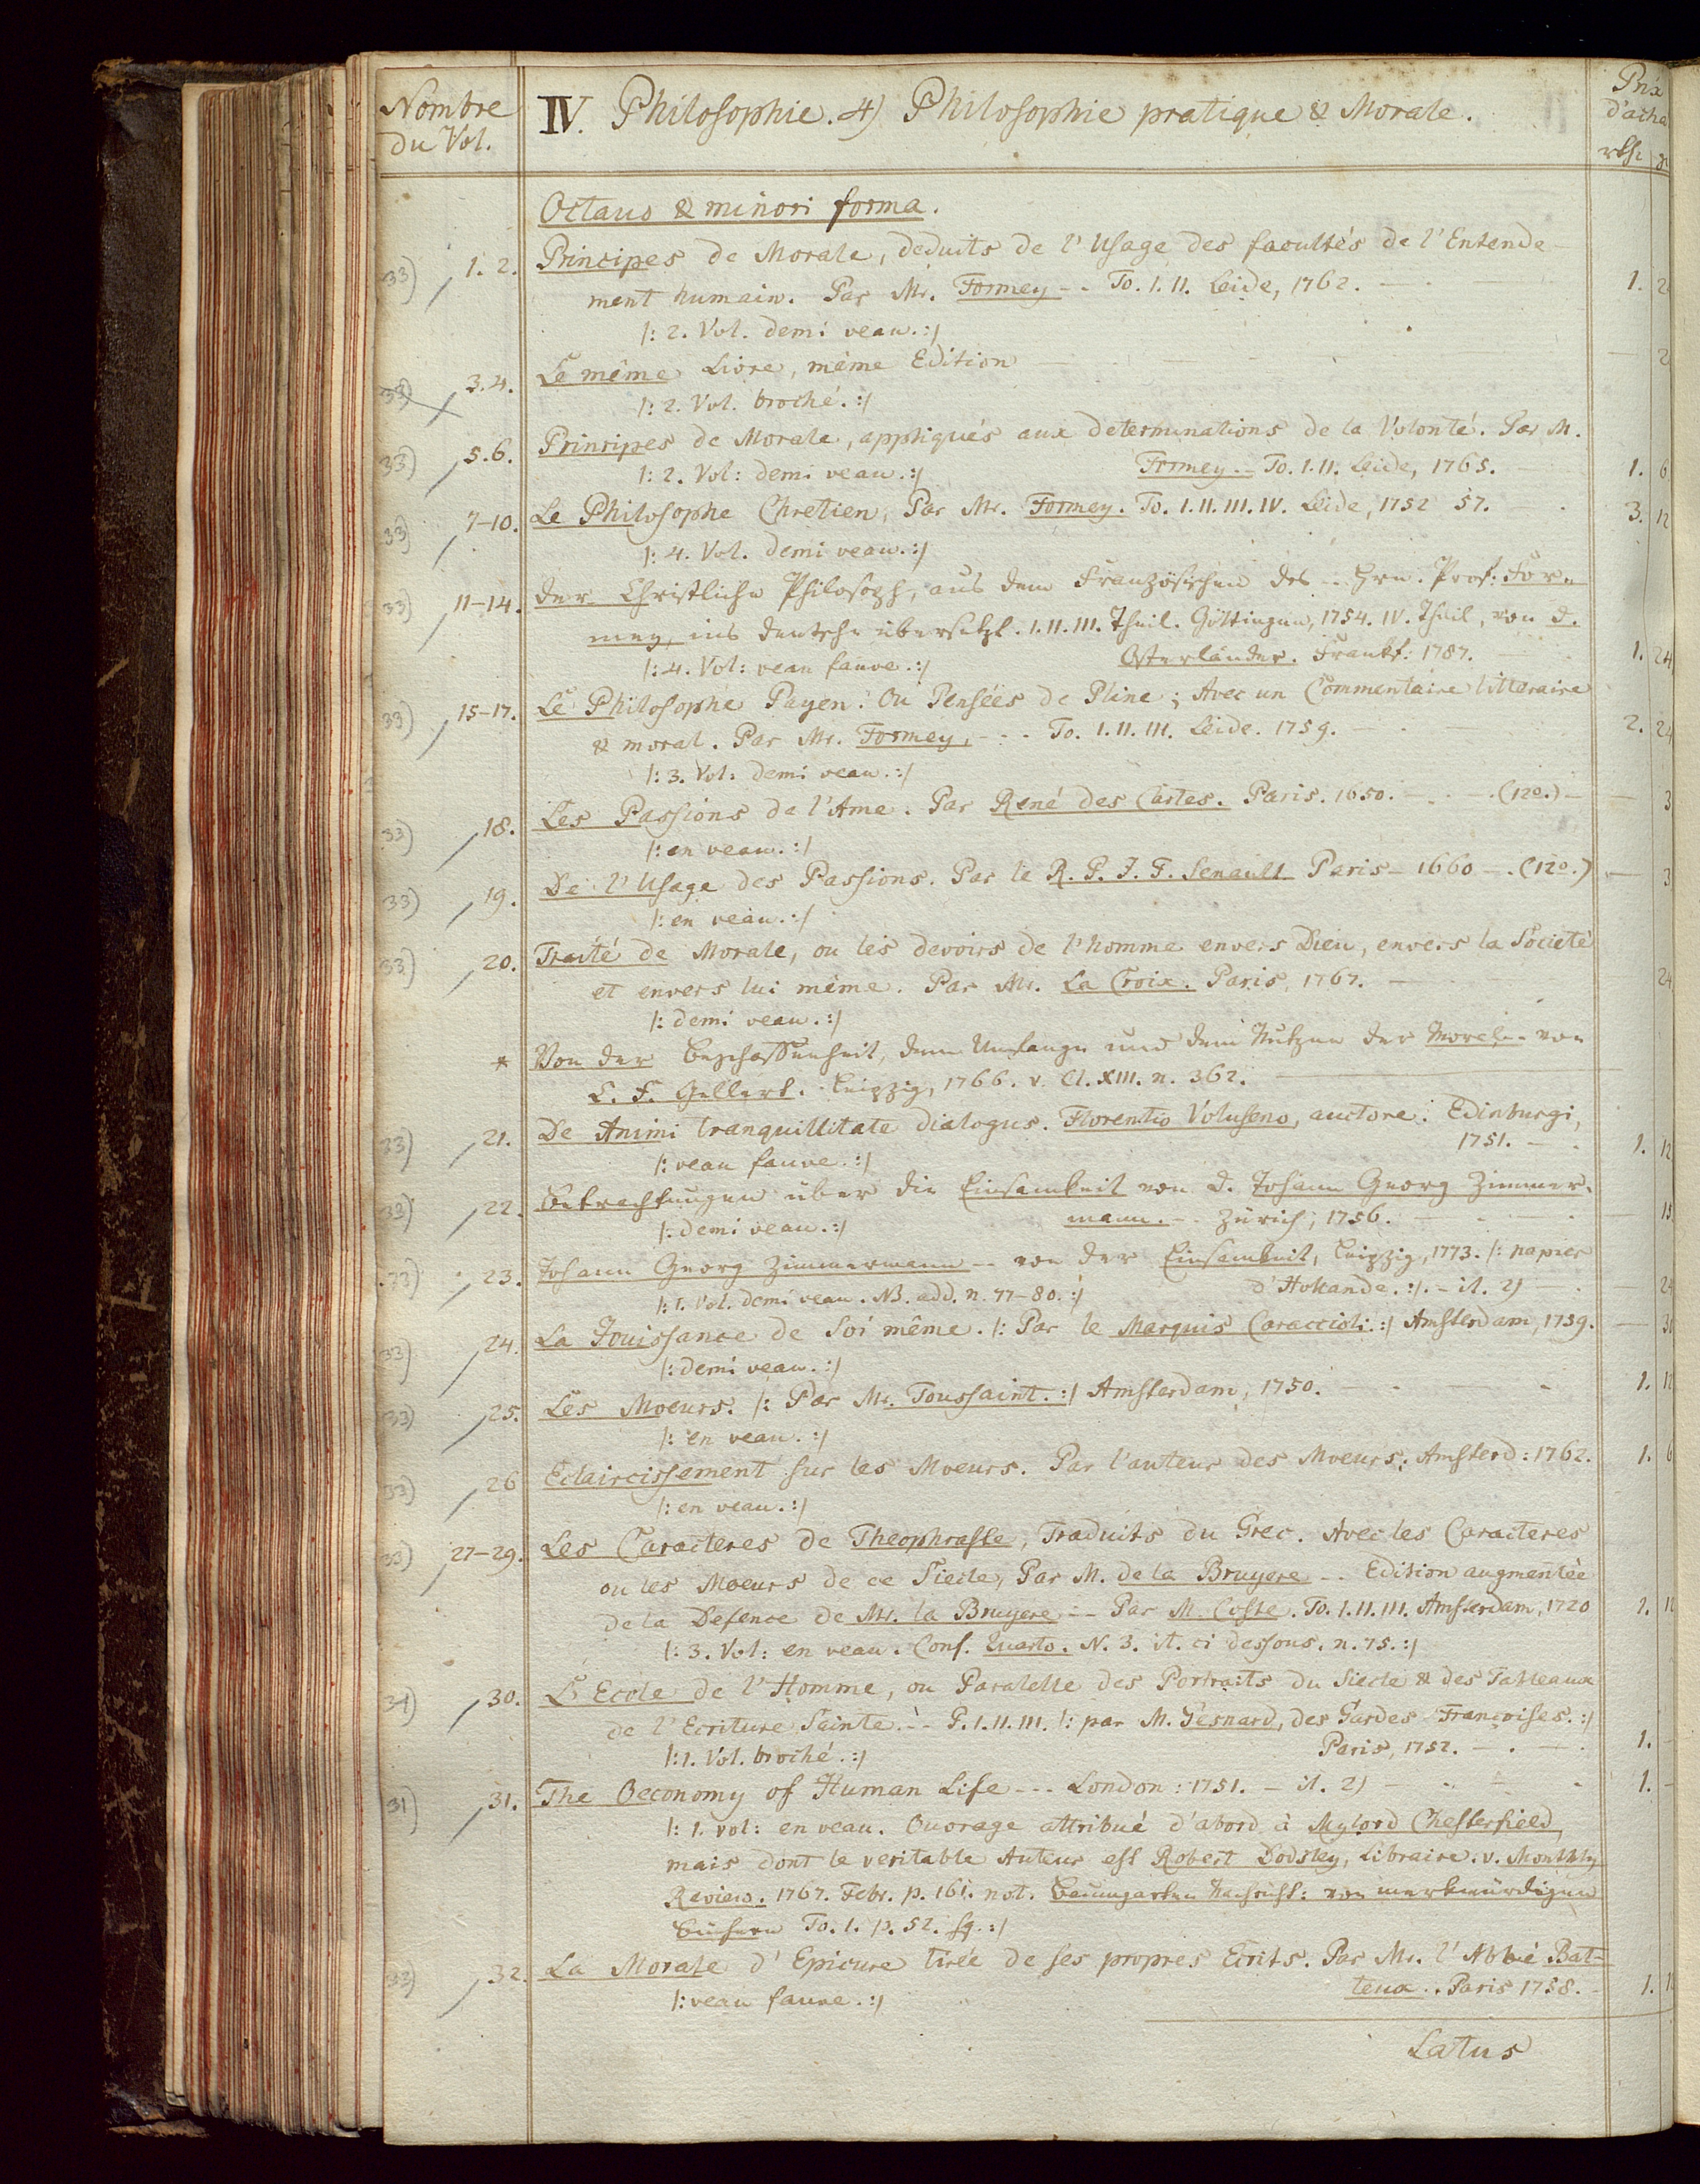 Nombre
du Vol.
IV. Philosophie. 4) Philosophie pratique & Morale.
Prix
d'acha
rthl.
Octavo & minori forma.
33) 1. 2. Principes de Morale, deduits de l'Usage des facultés de l'Entende-
ment humain. Par Mr. Formey -- To. I. II. Leide, 1762. 1. 2
|: 2. Vol. demi veau. :|
33) 3. 4. Le même Livre, même Edition 2
|: 2. Vol. broché. :|
33) 5. 6. Principes de Morale, appliqués aux determinations de la Volonté. Par M.
|: 2. Vol: demi veau. :| Formey -- To. I. II. Leide, 1765. 1. 6
33) 7-10. Le Philosophe Chretien, Par Mr. Formey. To. I. II. III. IV. Leide, 1752 57. 3. 12
|: 4. Vol. demi veau. :|
33) 11-14. Der Christliche Philosoph, aus dem Französischen des -- Hrn. Prof: For-
mey, ins deutsche übersetzt. I. II. III. Theil. Göttingen, 1754. IV. Theil, von D.
|: 4. Vol: veau fauve. :| Osterländer. Frankf: 1787. 1. 24
33) 15-17. Le Philosophe Payen. Ou Pensées de Pline; Avec un Commentaire litteraire
& moral. Par Mr. Formey, - - - To. I. II. III. Leide. 1759. 2. 24
|: 3. Vol: demi veau. :|
33) 18. Les Passions de l'Ame. Par René des Cartes. Paris. 1650. (12o.) 3
|: en veau. :|
33) 19. De l'Usage des Passions. Par le R. P. J. F. Senault Paris - 1660 - (12o.) 3
|: en veau. :|
33) 20. Traité de Morale, ou les devoirs de l'homme envers Dieu, envers la Societé
et envers lui même. Par Mr. La Croix. Paris, 1767. 24
|: demi veau. :|
* Von der Beschaffenheit, dem Umfange und dem Nutzen der Moral -- von
C. F. Gellert. Leipzig, 1766. v. Cl. XIII. n. 362.
33) 21. De Animi tranquillitate dialogus. Florentio Voluseno, auctore. Edinburgi,
|: veau fauve. :| 1751. 1. 12
33) 22. Betrachtungen über die Einsamkeit von D. Johann Georg Zimmer-
|: demi veau. :| mann. -- Zürich, 1756. 15
33) 23. Johann Georg Zimmermann -- von der Einsamkeit, Leipzig, 1773. |: papier
|: 1. Vol. demi veau. NB. add. n. 77-80. :| d'Hollande. :| - it. 2) 24
33) 24. La Jouissance de Soi même. |: Par le Marquis Caraccioli. :| Amsterdam, 1759.
|: demi veau. :|
33) 25. Les Moeurs. |: Par Mr. Toussaint. :| Amsterdam, 1750. 1. 12
|: en veau. :|
33) 26 Eclaircissement sur les Moeurs. Par l'auteur des Moeurs. Amsterd: 1762. 1. 6
|: en veau. :|
33) 27-29. Les Caracteres de Theophraste, Traduits du Grec. Avec les Caracteres
ou les Moeurs de ce Siecle, Par M. de la Bruyere -- Edition augmentée
de la Defence de Mr. la Bruyere -- Par M. Coste. To. I. II. III. Amsterdam, 1720 1.
|: 3. Vol: en veau. Conf. Quarto. N. 3. it. ci dessous. n. 75. :|
31) 30. L'Ecole de l'Homme, ou Paralelle des Portraits du Siecle & des Tableaux
de l'Ecriture Sainte. -- P. I. II. III. |: par M. Gesnard, des Gardes Françoises. :|
|: 1. Vol. broché. :| Paris, 1752. 1.
31) 31. The Oeconomy of Human Life --- London: 1751. - it. 2) 1.
|: 1. vol: en veau. Ouvrage attribué d'abord à Mylord Chesterfield,
mais dont le veritable Auteur est Robert Dodsley, Libraire. v. Monthly
Review. 1767. Febr. p. 161. not. Baumgarten Nachricht: von merkwürdigen
Büchern To. I. p. 52. sq. :|
33) 32. La Morale d'Epicure tirée de ses propres Ecrits. Par Mr. l'Abbé Bat-
|: veau fauve. :| teux. Paris 1758. 1.
Latus